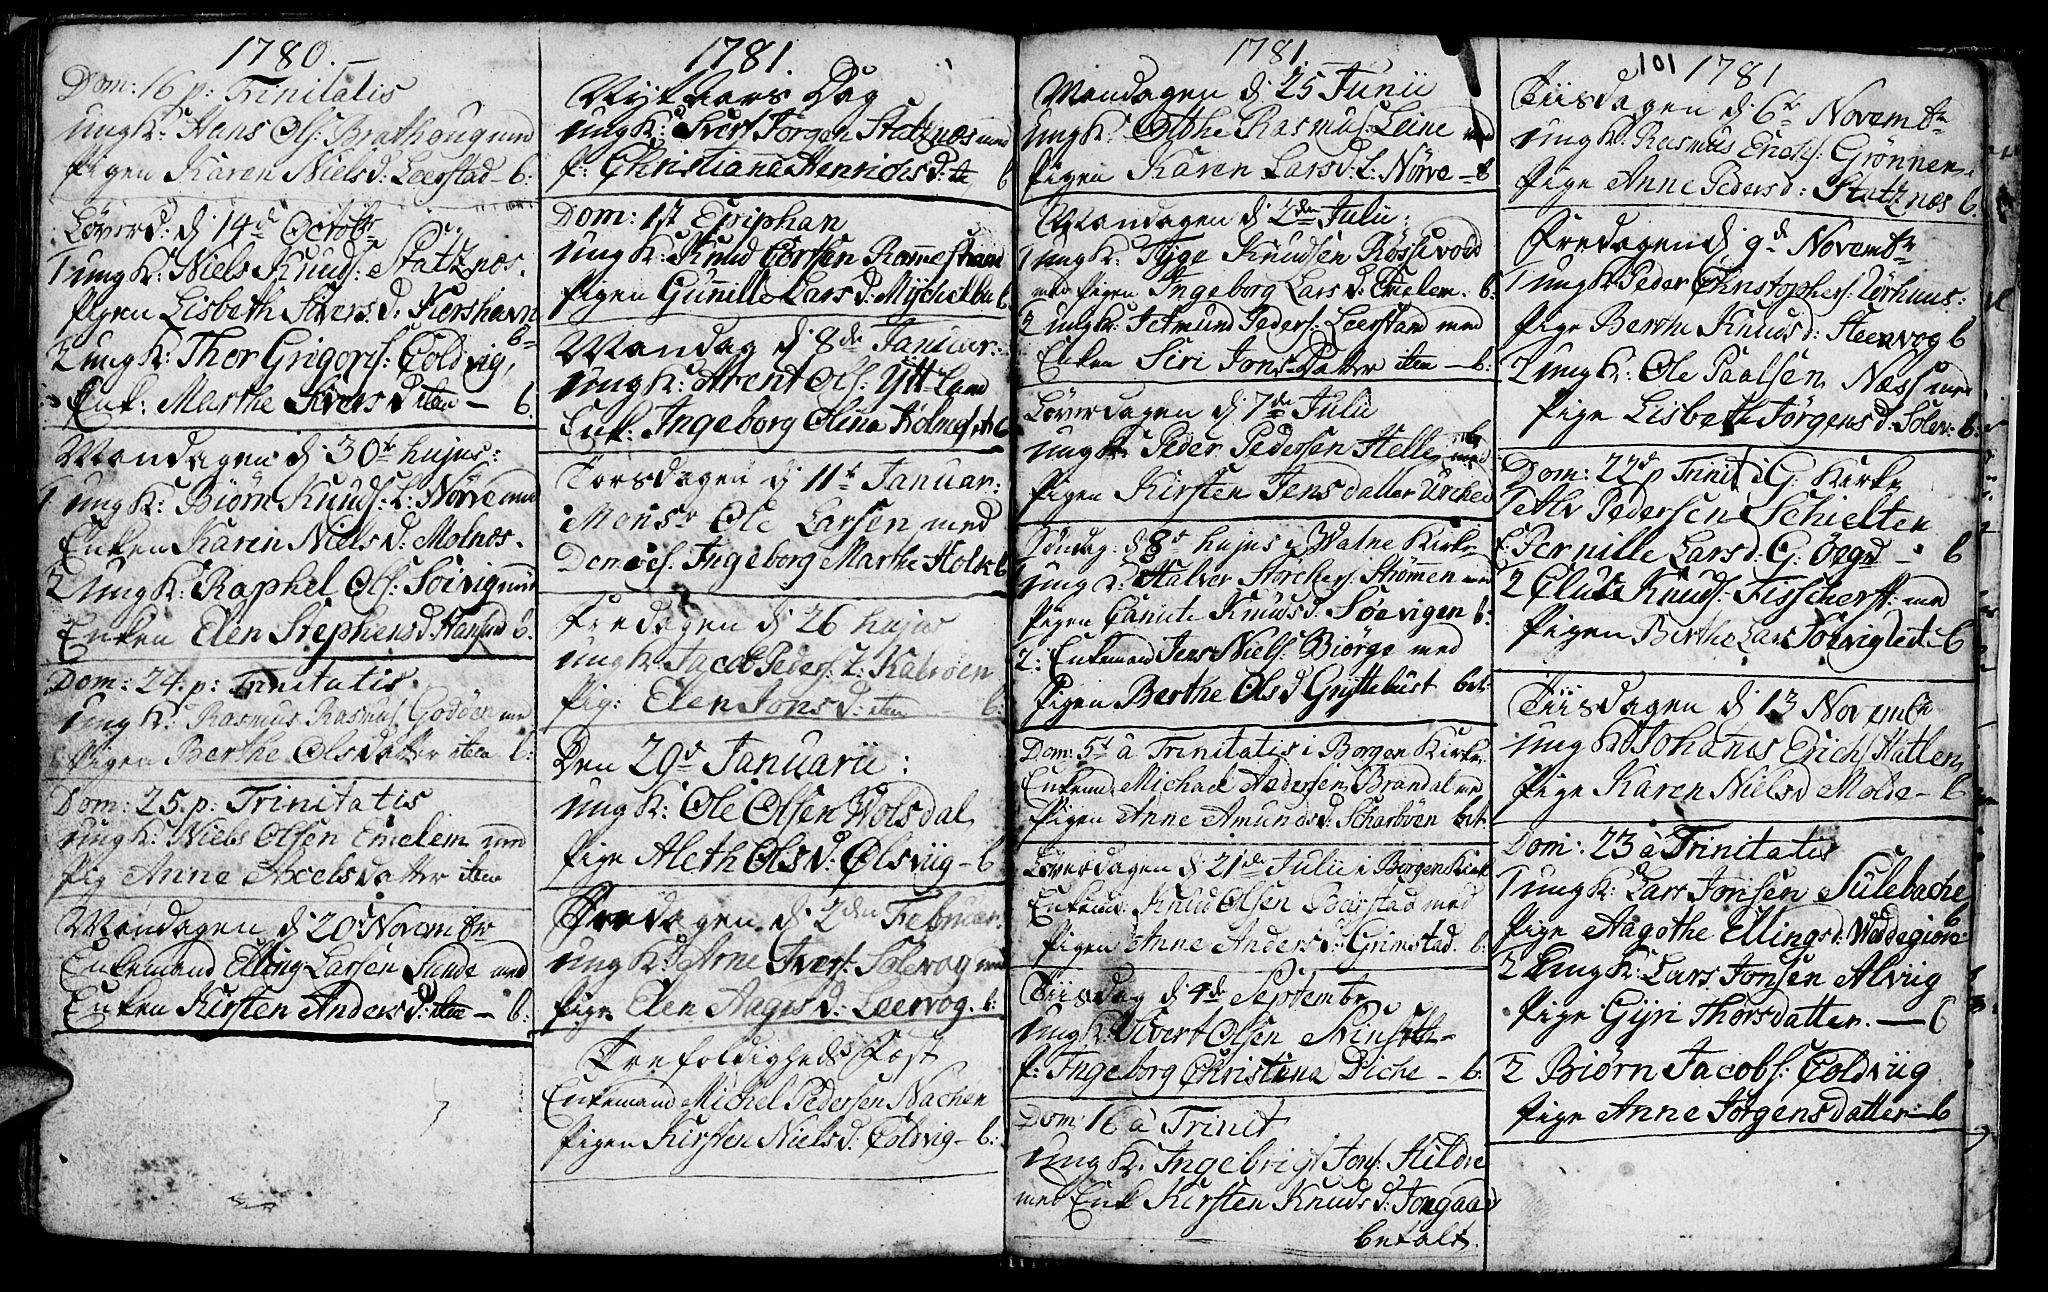 1780.
Dom: 16 p: Trinitatis
ungK: Hans Ols: Brathoug med
Pigen Karen Nielsd: Leerstad - b:
Löverd: d 14d Octobr
1 ungK: Niels Knuds: Statznæs.
Pigen Lisbeth Sivers d: Kershavn
b
2 ungK: Thor Grigors: Coldvig,
Enk: Marthe Ivers D iten - b.
Mandagen d 30te hujus:
1 ungK: Biörn Knuds: L: Nörve med
Enken Karen Niels d: Molnæs.
2 ungK: Raphel Ols: Soevig med
Enken Elen Stephens d b.
Dom: 24. p: Trinitatis
ungK: Rasmus Rasmus: Godöen med
Pigen Berthe Olsdatter iten b:
Dom: 25. p: Trinitatis
ungK: Niels Olsen Emelem med
Pig Anne Axelsdatter iten
Mandagen d 20 Novembr
Enkemand Elling Larsen Sunde med
Enken Kirsten Anders d: iten - b:
1781.
Nyt Aars Dag
ungK: Ivert Jörgen Statznæs med
P: Christiana Henrichs d: b
Dom: 1st Epiphan
ungK: Knud Corsen Ramestrand
Pigen Gunille Lars d: Myckelbu b.
Mandag d 8de Januar:
ungK: Arent Ols: Ytteland
Enk: Ingeborg Olina
Torsdagen d 11te Januar:
Monsr Ole Larsen med
Demois. Ingeborg Marthe Holck b
Fredagen d 26 hujus
ungK: Jacob Peders: L: Kalvöen
Pig: Elen Jons d: iten b:
Den 29d Januarii:
ungK: Ole Olsen Wolsdal
Pige Aleth Ols d: Olsviig - b
Fredagen d 2den Februar.
ungK: Arne Ivers: Solevog med
Pige Elen Aages d: Leervog. b:
Trefoldigheds Fæst
Enkemand Michel Pedersen Nachen
Pigen Kirsten Niels d: Coldvig - b:
1781.
Mandagen d 25 Junii
ungK: Othe Rasmus: Leine med
Pigen Karen Lars d: L: Nörve - b
Mandagen d 2den Julii:
1 ungK: Tyge Knudsen Rössevold
med Pigen Ingeborg Lars d: Emelem. b:
2 ungK: Jetmund Peders: Leerstand med
Enken Siri Jons Datter iten - b:
Löverdagen d 7de Julii
ungK: Peder Pedersen Helle med
Pigen Kirsten Jensdatter
Söndag: d 8d hujus i Watne Kirke
1 ung K: Halver Strömen med
Pigen Canute Knuds d. Soevigen b:
2: Enkemand Jens Niels: Biörge med
Pigen Berthe Ols d Gryttelust bet:
Dom: 5t à Trinitatis i Borgen Kirke
Enkemd. Michael Andersen Brandal med
Pigen Anne Amunds d: Scharböen bet.
Löverdagen d 21de Julii i Borgen Kirk
Enkemd. Knud Olsen Barstad med
Pigen Anne Anders d: Grimstad. b:
Tiisdag d 4de Septembr
ungK: Sivert Olsen
P: Ingeborg Christina Diche - b:
Dom: 16 à Trinit
ungK: Ingebrigt Jons: Hildre
med Enk Kirsten Knuds d: Jongaard
betalt.
101 1781
Tiisdagen d 6te Novembr
ungK: Rasmus Erichs: Grönnen.
Pige Anne Peders d: Statznæs b.
Fredagen d 9d Novembr
1 ungK Peder Christophers:
Pige Berthe Knuds d: Steenvog b
2 ungK: Ole Paalsen Næss med
Pige Lisbeth Jörgens d: Solev: b:
Dom: 22d p Trinit i G. Kirke
Pedersen Schielten
P: Pernille Lars d: G: - b
2 Knuds: med
Pigen Berthe Lars - b
Tiisdagen d 13 Novembr
ungK Johanes Erichs: Hatlen
Pige Karen Niels d Molde - b
Dom: 23 à Trinitatis
1 ungK: Lars Jonsen Sulebache
b
Pige Aagothe Ellings d: Weddegiere
2 UngK: Lars Jonsen Alviig
Pige Gyri Thorsdatter. — b
2 Biörn Jacobs: Coldviig
Pige Anne Jörgensdatter - b